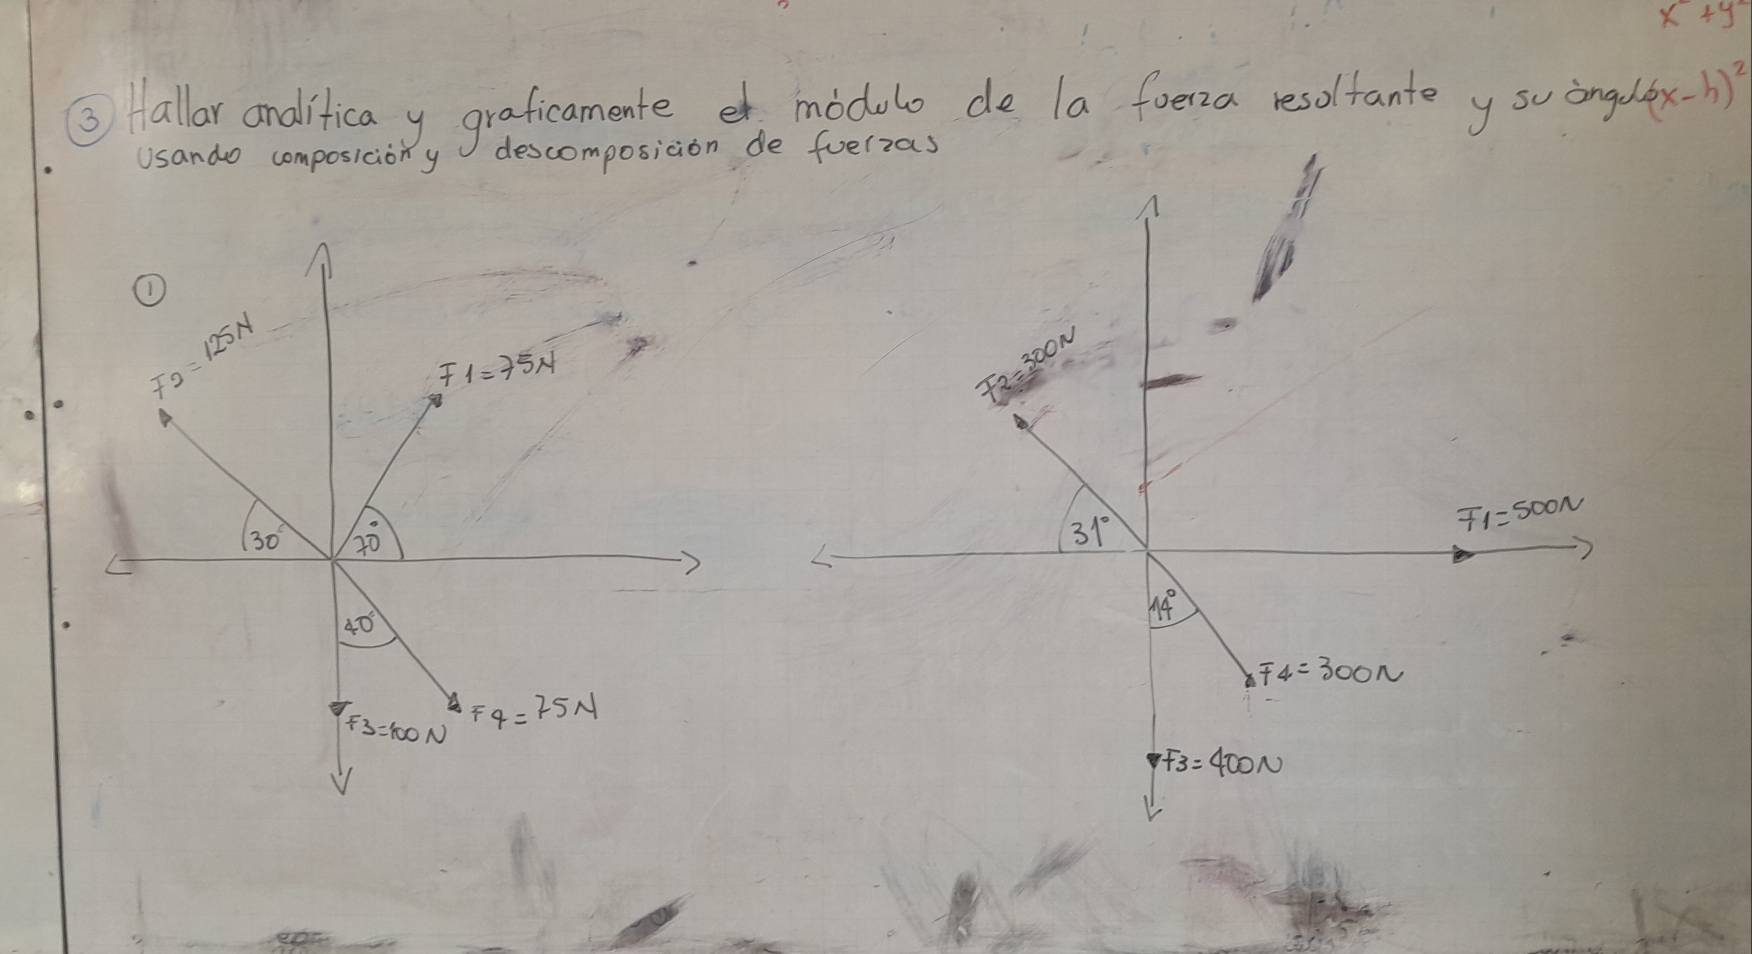 x² + y²
③ Hallar analítica y graficamente el módulo de la fuerza resultante y su ángulo
(x-h)²
Usando composición y descomposición de fuerzas
①
F2 = 125N
F1 = 75N
30°
70°
40°
F3 = 100N
F4 = 75N
F2 = 300N
31°
F1 = 500N
14°
F4 = 300N
F3 = 400N